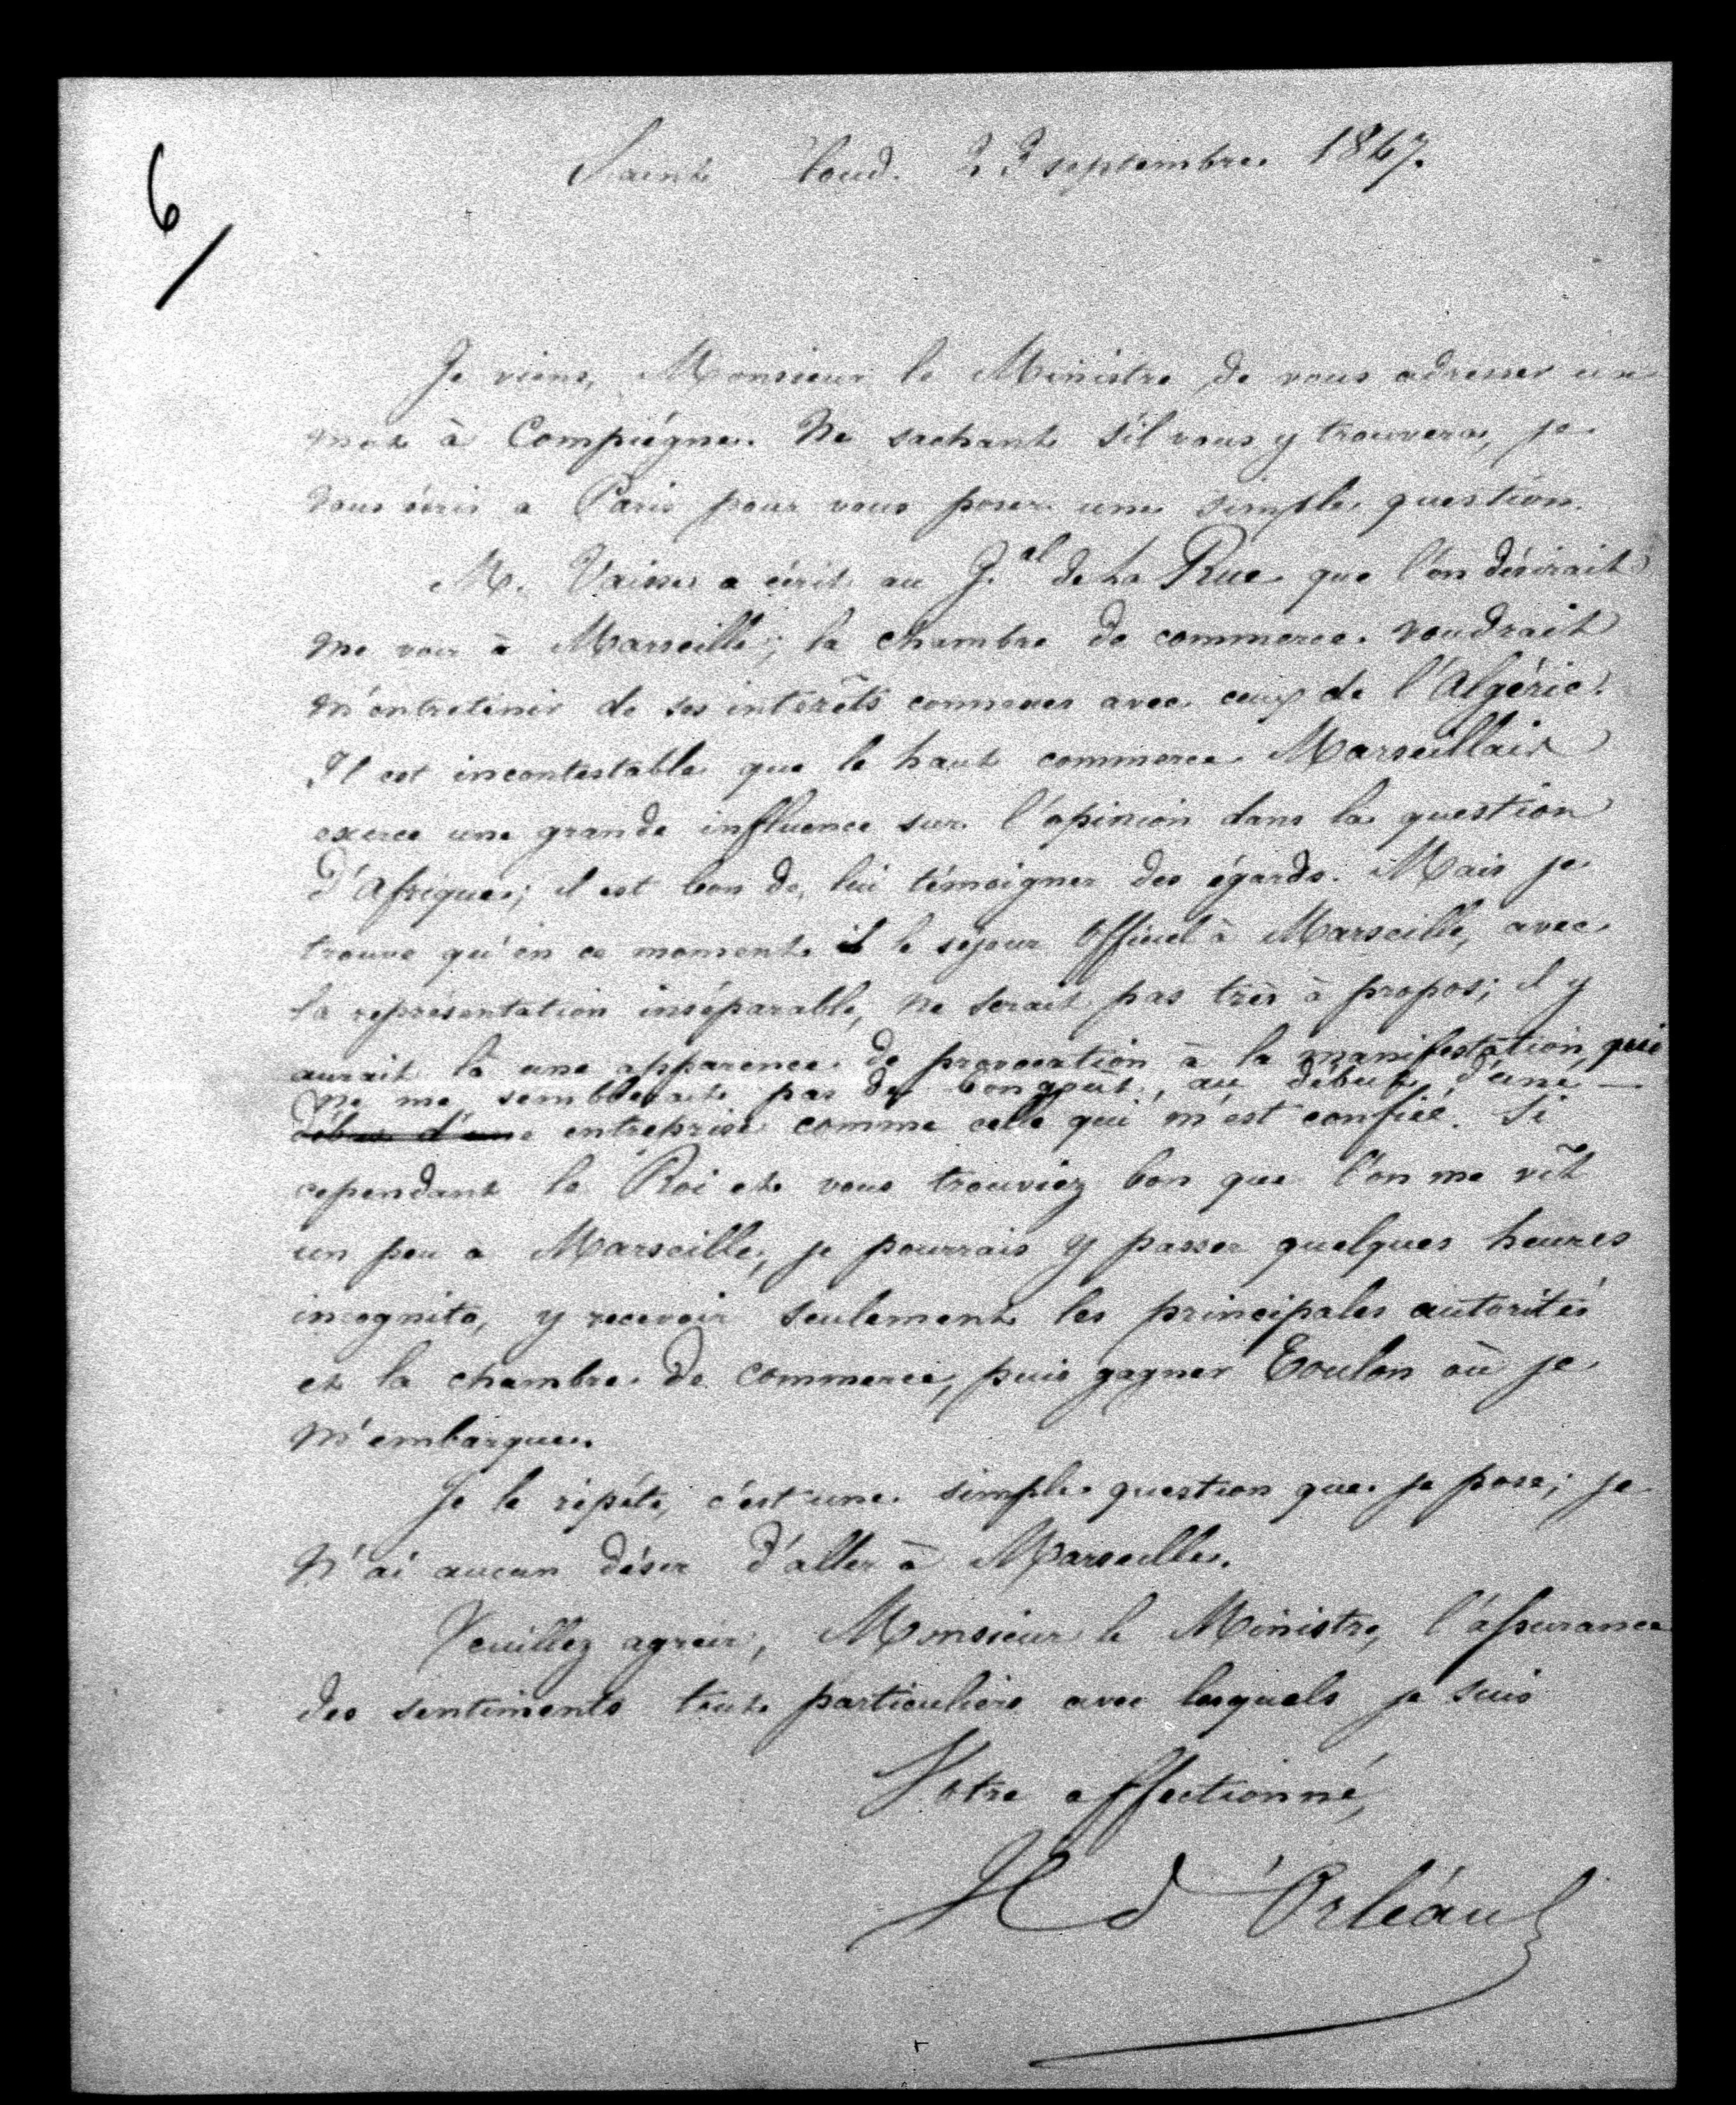 6/
Saint Cloud. 23 septembre 1847.
Je viens, Monsieur le Ministre, de vous adresser un
mot à Compiégne. Ne sachant s'il vous y trouvera, je
vous écris a Paris pour vous poser une simple question.
M. Vaisse a écrit au G.al de La Rue que l'on désirait
me voir à Marseille; la chambre de commerce voudrait
m'entretenir de ses intérêts connexes avec ceux de l'Algérie.
Il est incontestable que le haut commerce Marseillais
exerce une grande influence sur l'opinion dans la question
d'Afrique; il est bon de lui témoigner des égards. Mais je
trouve qu'en ce moment le séjour officiel à Marseille, avec
la représentation inséparable, ne serait pas très à propos; il y
aurait là une apparence de provocation à la manifestation, qui
ne me semblerait pas de bon gout, au début d'une
début d'une entreprise comme celle qui m'est confiée. Si
cependant le Roi et vous trouviez bon que l'on me vît
un peu a Marseille, je pourrais y passer quelques heures
incognito, y recevoir seulement les principales autorités
et la chambre de commerce, puis gagner Toulon où je
m'embarque.
Je le répéte, c'est une simple question que je pose; je
n'ai aucun désir d'aller à Marseille.
Veuillez agréer, Monsieur le Ministre, l'assurance
des sentiments tout particuliers avec lesquels je suis
Votre affectionné,
H d'Orléans